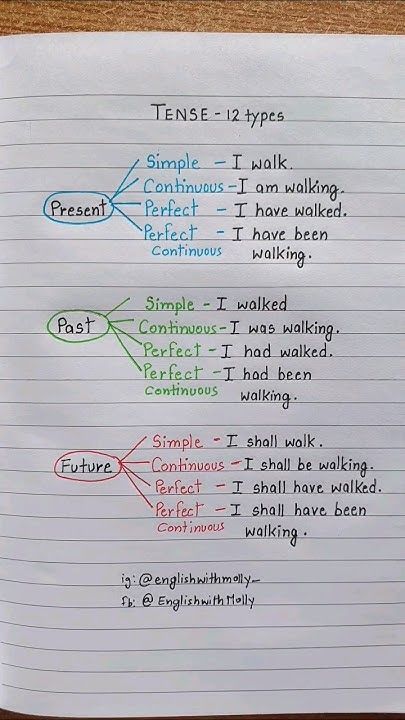 TENSE - 12 types
Simple - I walk.
Continuous - I am walking.
Present
Perfect - I have walked.
Perfect - I have been
Continuous walking.
Simple - I walked
Past
Continuous - I was walking.
Perfect - I had walked.
Perfect - I had been
Continuous walking.
Simple - I shall walk.
Future
Continuous - I shall be walking.
Perfect - I shall have walked.
Perfect - I shall have been
Continuous walking.
ig: @englishwithmolly_
fb: @ EnglishwithMolly